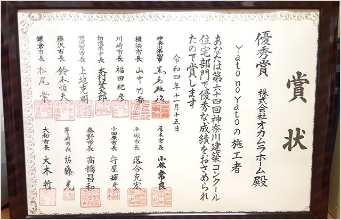 賞状
優秀賞
株式会社オカムラホーム殿
Yato no Yatoの施工者
あなたは第六十四回神奈川建築コンクール
住宅部門で優秀な成績をおさめられ
たので賞します
令和四年十一月十五日
神奈川県知事
横浜市長 山中竹春
川崎市長 福田紀彦
相模原市長
横須賀市長 上地克明
藤沢市長 鈴木恒夫
鎌倉市長 松尾崇
厚木市長 小林常良
平塚市長 落合克宏
小田原市長 守屋輝彦
秦野市長 高橋昌和
茅ヶ崎市長 佐藤光
大和市長 大木哲